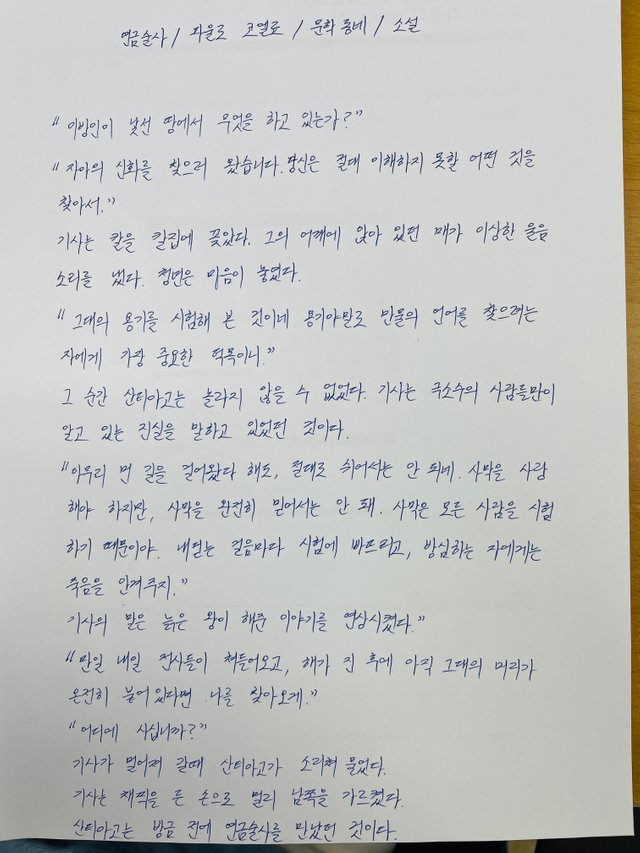 연금술사 / 파울로 코엘료 / 문학동네 / 소설
"이방인이 낯선 땅에서 무엇을 하고 있는가?"
"자아의 신화를 찾으러 왔습니다. 당신은 절대 이해하지 못할 어떤 것을
찾아서."
기사는 칼을 칼집에 꽂았다. 그의 어깨에 앉아 있던 매가 이상한 울음
소리를 냈다. 청년은 마음이 놓였다.
"그대의 용기를 시험해 본 것이네. 용기야말로 만물의 언어를 찾으려는
자에게 가장 중요한 덕목이니."
그 순간 산티아고는 놀라지 않을 수 없었다. 기사는 극소수의 사람들만이
알고 있는 진실을 말하고 있었던 것이다.
"아무리 먼 길을 걸어왔다 해도, 절대로 쉬어서는 안 되네. 사막을 사랑
해야 하지만, 사막을 완전히 믿어서는 안 돼. 사막은 모든 사람을 시험
하기 때문이야. 내딛는 걸음마다 시험에 빠뜨리고, 방심하는 자에게는
죽음을 안겨주지."
기사의 말은 늙은 왕이 해준 이야기를 연상시켰다."
"만일 내일 전사들이 쳐들어오고, 해가 진 후에 아직 그대의 머리가
온전히 붙어 있다면 나를 찾아오게."
"어디에 사십니까?"
기사가 멀어져 갈때 산티아고가 소리쳐 물었다.
기사는 채찍을 든 손으로 멀리 남쪽을 가르켰다.
산티아고는 방금 전에 연금술사를 만났던 것이다.